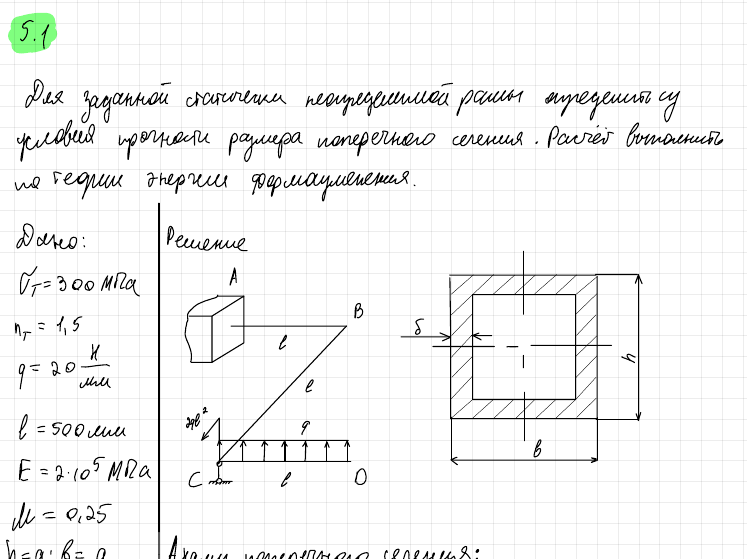 5.1
Для заданной статически неопределимой рамы определить су
условия прочности размера поперечного сечения. Расчёт выполнить
по теории энергии формоизменения.
Дано:
Решение
σт = 300 МПа
nт = 1,5
q = 20 Н/мм
l = 500 мм
E = 2·10⁵ МПа
μ = 0,25
h = a; b = a
A
B
l
l
2ql²
q
C
l
D
δ
h
b
Анализ поперечного сечения: